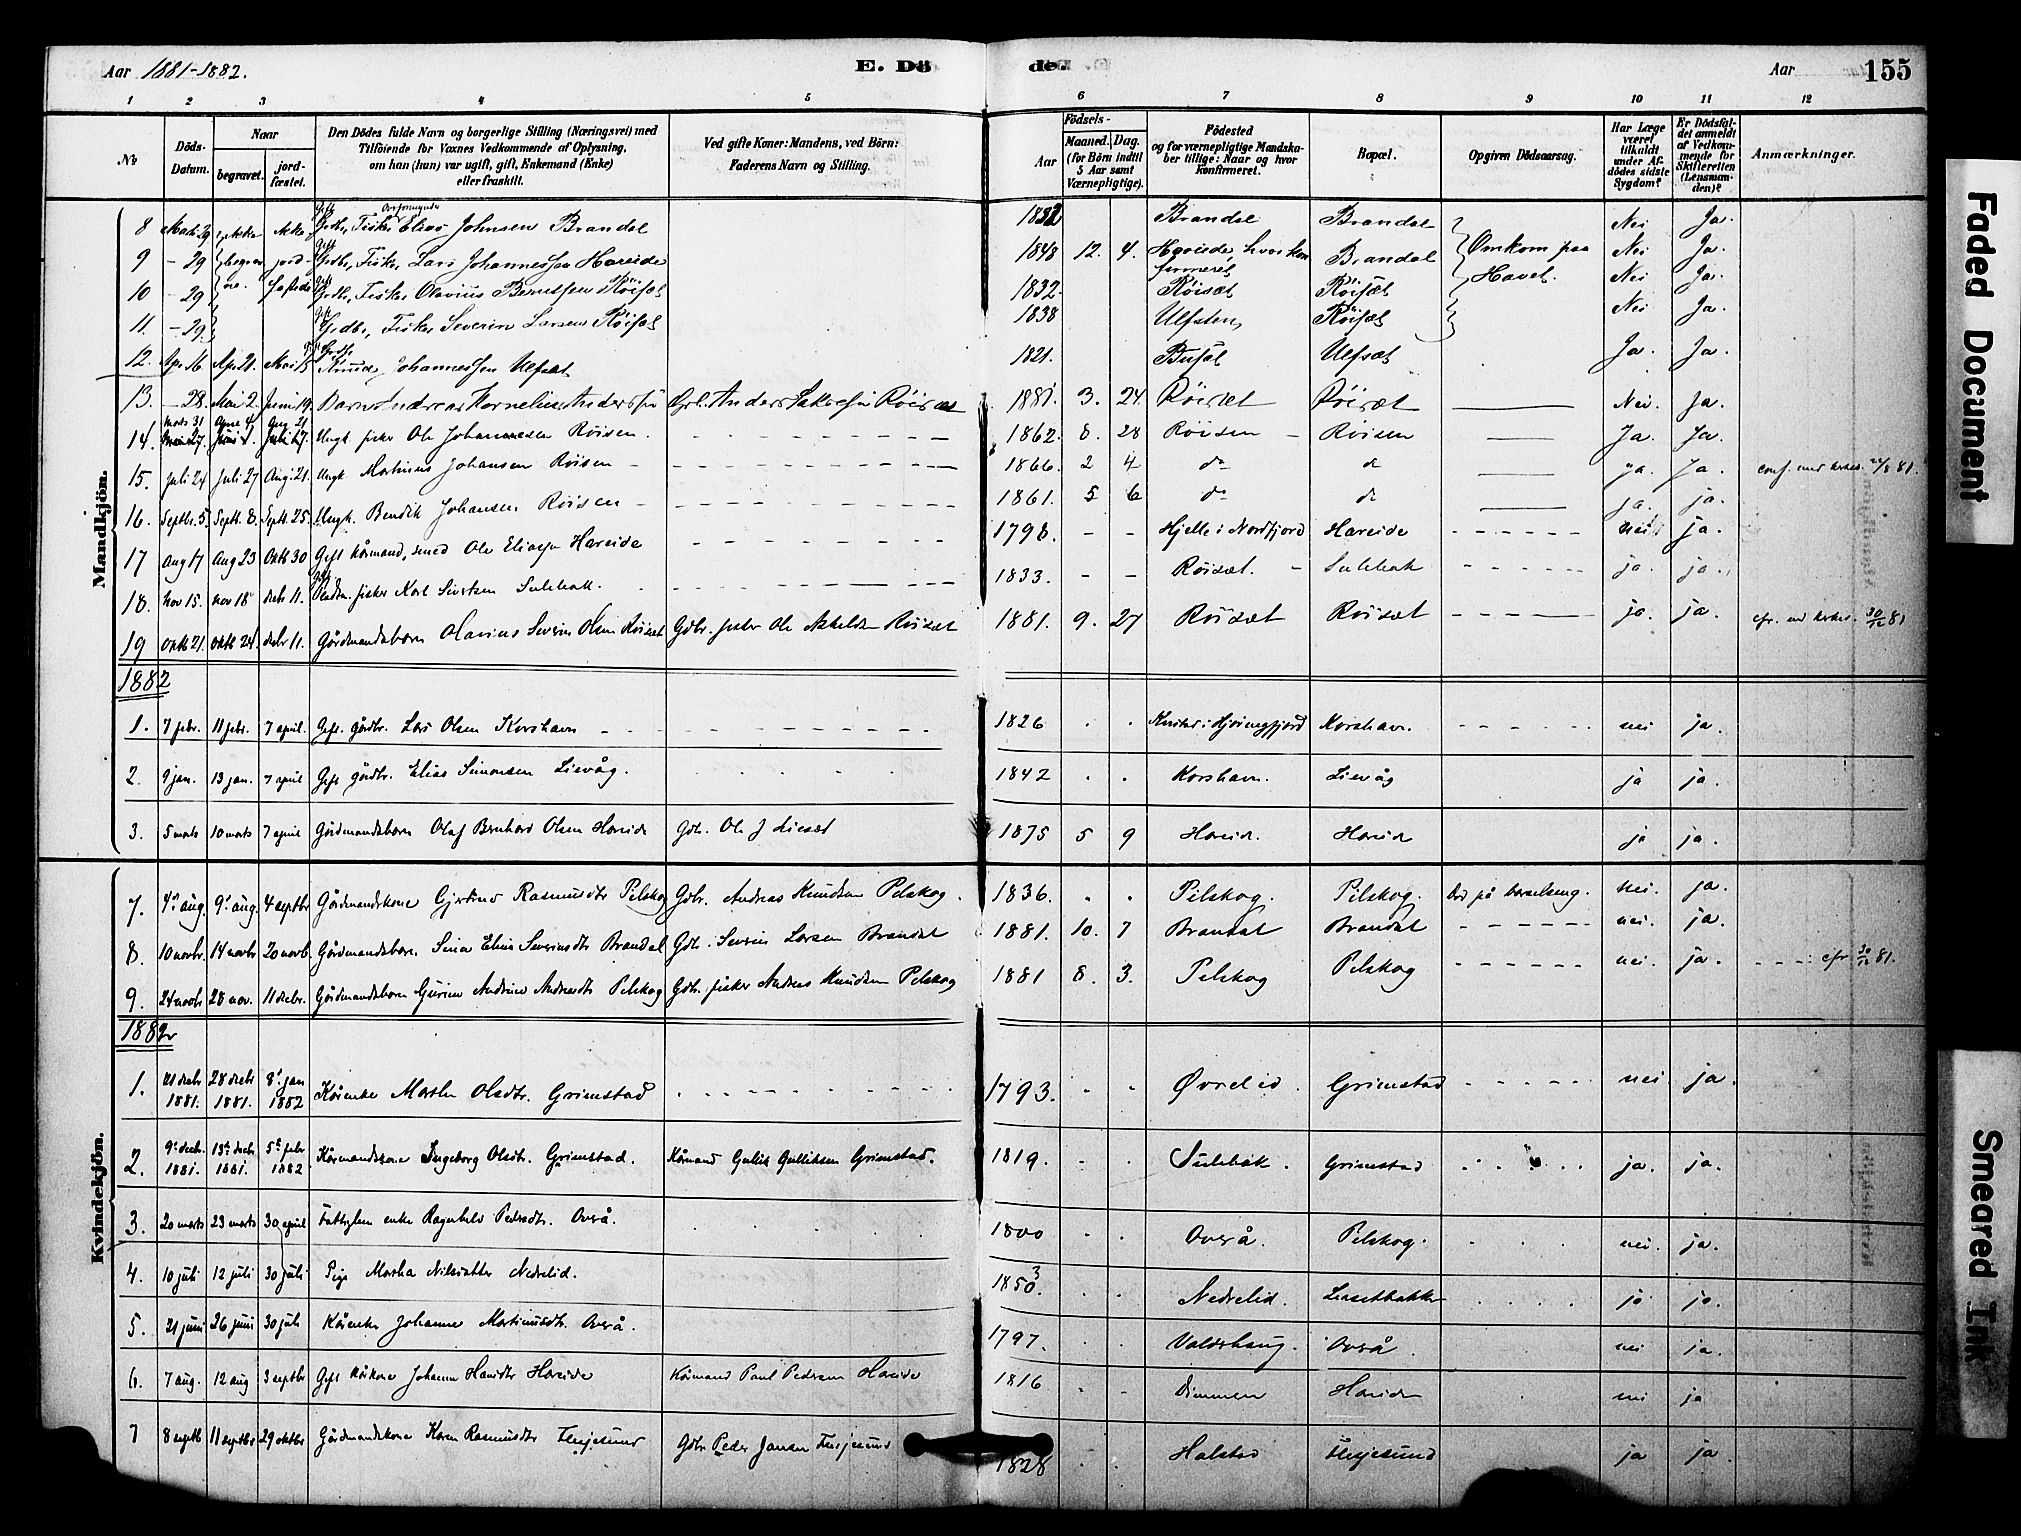 Aar 1881-1882.
E. Dö
de.
Aar
155
1 2 3 4 5 6 7 8 9 10 11 12
No
Döds-Datum.
Naar
begravet.
jord-fæstet.
Den Dödes fulde Navn og borgerlige Stilling (Næringsvei) med Tilföiende for Voxnes Vedkommende af Oplysning, om han (hun) var ugift, gift, Enkemand (Enke) eller fraskilt.
Ved gifte Koner: Mandens, ved Börn: Faderens Navn og Stilling.
Födsels-
Aar
Maaned. Dag.
(for Börn indtil 5 Aar samt Værnepligtige).
Födested
og for værnepligtige Mandskaber tillige: Naar og hvor konfirmeret.
Bopæl.
Opgiven Dödsaarsag.
Har Læge været tilkaldt under Afdödes sidste Sygdom?
Er Dödsfaldet anmeldt af Vedkommende for Skifteretten (Lensmanden)?
Anmærkninger.
Mandkjön.
8 Marts 29 ikke ikke Gift Grdbr, Fisker Elias Johnsen Brandal 1832 Brandal Brandal Nei Ja.
9 - 29 begrav jord- Gift Grdbr, Fisker Lars Johannessen Hareide 1848 12. 4. Hareide, hvor kon firmeret Brandal Omkom paa Nei Ja.
10 - 29 ne. fæstede Gift Grdbr, Fisker Olavius Berntsen Röisæt 1832. Röisæt Röisæt Havet. Nei Ja.
11. - 29. Gift Grdbr, Fisker Severin Larsen Röisæt 1838 Ulfsten, Röisæt Nei Ja.
12. Apr 16 Apr 21. Mai 15 Knud Johannessen Ulfsæt 1821. Ulfsæt Ja. Ja.
13. - 28. Mai 2. Juni 19. Barn Andreas Kornelius Anderssen Röisæt 1881. 3. 24. Röisæt Röisæt Nei. Ja.
14. Marts 31 Aug 21 Ungk fisker Ole Johannesen Röisen. 1862. 8. 28 Röisen Röisen Ja. Ja.
15. Juli 24 Juli 27 Aug. 21. Ungk Martinus Johansen Röisen 1866. 2 4 do do ja. Ja.
16. Septbr. 5. Septb. 8. Septb. 25. Ungk. Bendik Johansen Röisen 1861. 5 6 do do ja. ja.
17 Aug 17 Aug 23 Oktb 30 Gift kårmand, smed Ole Eliasen Hareide 1798. - - Hjelle i Nordfjord Hareide nei ja.
18. Nov 15. Nov 18 debr 11. Gift fisker Karl Sivertsen Sulebak. 1833. - - Röisæt. Sulebak ja. ja.
19 Oktb 21. Oktb 24. debr 11. Gårdmandsbarn Olavius Severin Olsen Röisæt Gdbr. fisker Ole Röisæt 1881. 9. 27 Röisæt Röisæt ja. ja. 30/12 81
1882
1. 7 febr. 11 febr. 7 april. Gift. gårdbr. Lars Olsen Korshavn 1826 Hjörungfjord Korshavn. nei ja.
2. 9 jan. 13 jan. 7 april Gift gårdbr. Elias Simonsen Lievåg. 1842 Korshavn. Lievåg ja ja.
3. 5 marts 10 marts 7 april Gårdmandsbarn Olaf Bernhard Olsen Hareide Gdbr. Ole J 1875 5 9 Hareid. Hareid ja ja.
Kvindekjön.
7. 4 aug. 9 aug. 4 septbr Gårdmandskone Rasmusdtr Pilskog Gdbr. Andreas Knudsen Pilskog. 1836. Pilskog. Pilskog. Död på barselseng. nei. ja.
8. 10 novbr. 14 novbr 20 novb. Gårdmandsbarn. Elise Severinsdtr Brandal Gdbr. Severin Larsen Brandal 1881. 10. 7 Brandal Brandal nei. ja.
9. 24 novbr 28 nov. 11 debr. Gårdmandsbarn Andrine Andreasdtr Pilskog Gdbr. fisker Andreas Knudsen Pilskog 1881 8. 3. Pilskog Pilskog nei. ja. 30/12 81.
1882
1. 21 decbr 1881. 28 decbr 1881. 8 jan 1882 Kårenke Marthe Olsdtr. Grimstad 1793. Øvrelid. Grimstad nei ja.
2. 9 decbr. 1881. 13 decbr 1881. 5 febr 1882 Kårmandskone Ingeborg Olsdtr. Grimstad. Kårmand Gullik Gulliksen Grimstad. 1819. Sulebak. Grimstad ja. ja.
3. 20 marts 23 marts 30 april Fattiglem enke Ragnhild Pedersdtr. Overå. 1800 Overå. Pilskog. nei. ja.
4. 10 juli 12 juli 30 juli Pige Martha Nilsdatter Nedrelid. 1850. 3 Nedrelid. ja ja.
5. 21 juni 26 juni 30 juli Kårenke Johanne Martinusdtr. Overå. 1797. Valderhaug. Overå nei ja.
6. 7 aug. 12 aug 3 septbr Gift kårkone Johanne Hansdtr Hareide Kårmand Paul Pedersen Hareide 1816 Dimmen Hareide nei ja
7 8 septb 11 septbr 29 oktbr Gårdmandskone Karen Rasmusdtr Flusjesund Gdbr Peder Jansen Flusjesund 1828 Halstad Flusjesund ja ja
Faded Document
Smeared Ink